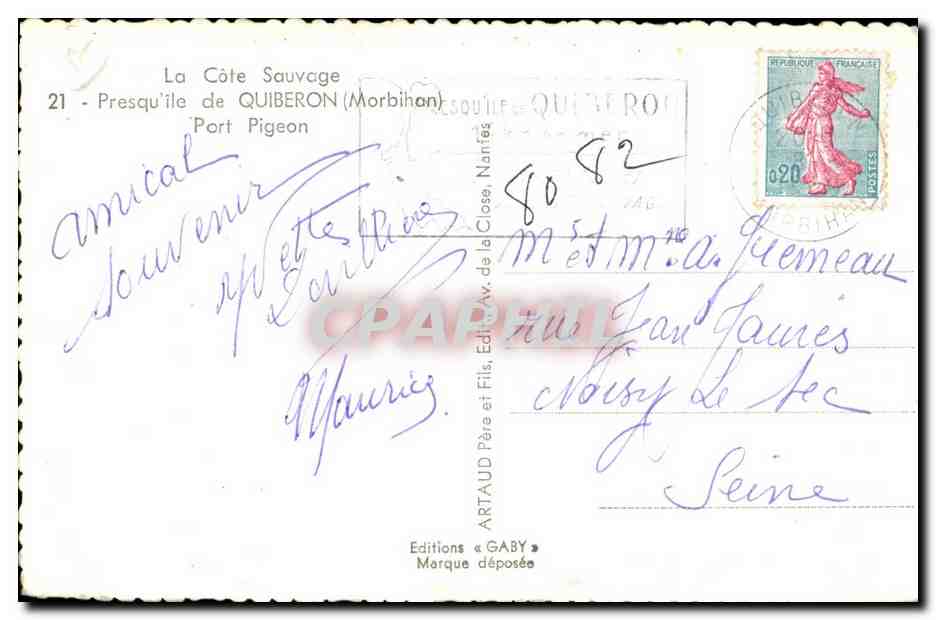 La Côte Sauvage
21 - Presqu'île de QUIBERON (Morbihan)
Port Pigeon
PRESQU'ILE DE QUIBERON
REPUBLIQUE FRANÇAISE
0,20
POSTES
MORBIHAN
80 82
amical
souvenir
Yvette
Maurice
M et M
rue Jean Jaurès
Noisy Le Sec
Seine
CPAPHIL
ARTAUD Père et Fils, Edit., Av. de la Close, Nantes
Editions « GABY »
Marque déposée